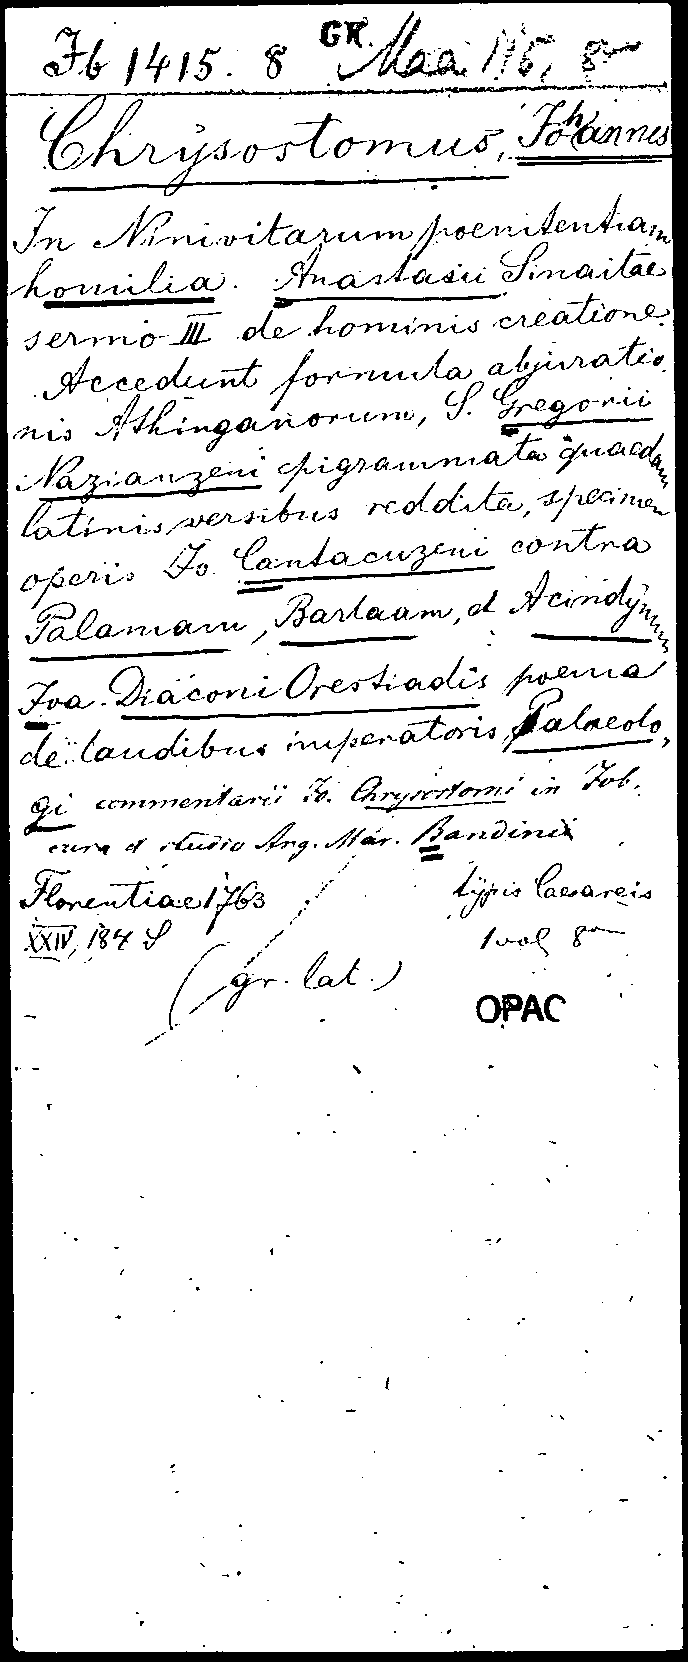 Fb 1415. 8 GR. Maa 115, 8°
Chrysostomus, Johannes
In Ninivitarum poenitentiam
homilia. Anastasii Sinaitae
sermo III de hominis creatione.
Accedunt formula abjuratio
nis Athinganorum, S. Gregorii
Nazianzeni epigrammata quaedam
latinis versibus reddita, specimen
operis Jo. Cantacuzeni contra
Palamam, Barlaam, et Acindynum
Joa. Diaconi Orestiadis poema
de laudibus imperatoris Palaeolo,
gi commentarii Jo. Chrysostomi in Job.
cura et studio Ang. Mar. Bandini
Florentiae 1763 typis Caesareis
XXIV, 184 S 1 vol 8°
(gr. lat.)
OPAC